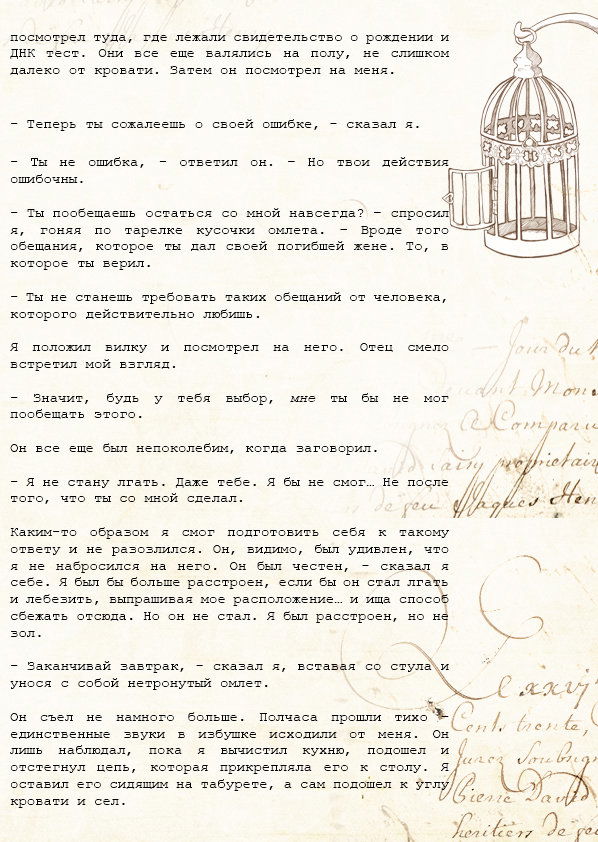 посмотрел туда, где лежали свидетельство о рождении и
ДНК тест. Они все еще валялись на полу, не слишком
далеко от кровати. Затем он посмотрел на меня.
– Теперь ты сожалеешь о своей ошибке, – сказал я.
– Ты не ошибка, – ответил он. – Но твои действия
ошибочны.
– Ты пообещаешь остаться со мной навсегда? – спросил
я, гоняя по тарелке кусочки омлета. – Вроде того
обещания, которое ты дал своей погибшей жене. То, в
которое ты верил.
– Ты не станешь требовать таких обещаний от человека,
которого действительно любишь.
Я положил вилку и посмотрел на него. Отец смело
встретил мой взгляд.
– Значит, будь у тебя выбор, мне ты бы не мог
пообещать этого.
Он все еще был непоколебим, когда заговорил.
– Я не стану лгать. Даже тебе. Я бы не смог… Не после
того, что ты со мной сделал.
Каким-то образом я смог подготовить себя к такому
ответу и не разозлился. Он, видимо, был удивлен, что
я не набросился на него. Он был честен, – сказал я
себе. Я был бы больше расстроен, если бы он стал лгать
и лебезить, выпрашивая мое расположение… и ища способ
сбежать отсюда. Но он не стал. Я был расстроен, но не
зол.
– Заканчивай завтрак, – сказал я, вставая со стула и
унося с собой нетронутый омлет.
Он съел не намного больше. Полчаса прошли тихо –
единственные звуки в избушке исходили от меня. Он
лишь наблюдал, пока я вычистил кухню, подошел и
отстегнул цепь, которая прикрепляла его к столу. Я
оставил его сидящим на табурете, а сам подошел к углу
кровати и сел.
Jour du
Mon
Comparu
proprietair
Jaques Hen
Lxxvj
Cent trente,
Pierre David
heritiers de feu